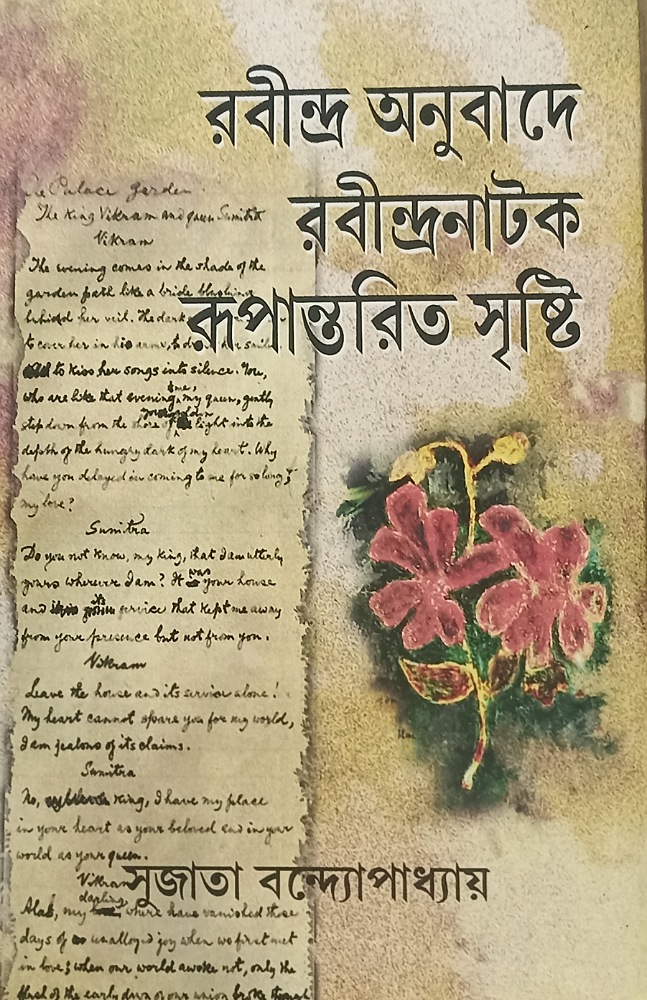 রবীন্দ্র অনুবাদে
রবীন্দ্রনাটক
রূপান্তরিত সৃষ্টি
Palace Garden
The King Vikram and queen Sumitra
Vikram
The evening comes in the shade of the
garden path like a bride blushing
behind her veil. The dark
to cover her in his arms, to
to kiss her songs into silence. You,
who are like that evening time, my queen, gently
step down from the shore of your golden light into the
depth of the hungry dark of my heart. Why
have you delayed in coming to me for so long,
my love?
Sumitra
Do you not know, my king, that I am utterly
yours wherever I am? It was your house
and its service that kept me away
from your presence but not from you.
Vikram
Leave the house and its service alone!
My heart cannot spare you for my world,
I am jealous of its claims.
Sumitra
No, King, I have my place
in your heart as your beloved and in your
world as your queen.
Vikram
Alas, my darling, where have vanished those
days of unalloyed joy when we first met
in love; when our world awoke not, only the
flush of the early dawn of our union broke through
সুজাতা বন্দ্যোপাধ্যায়